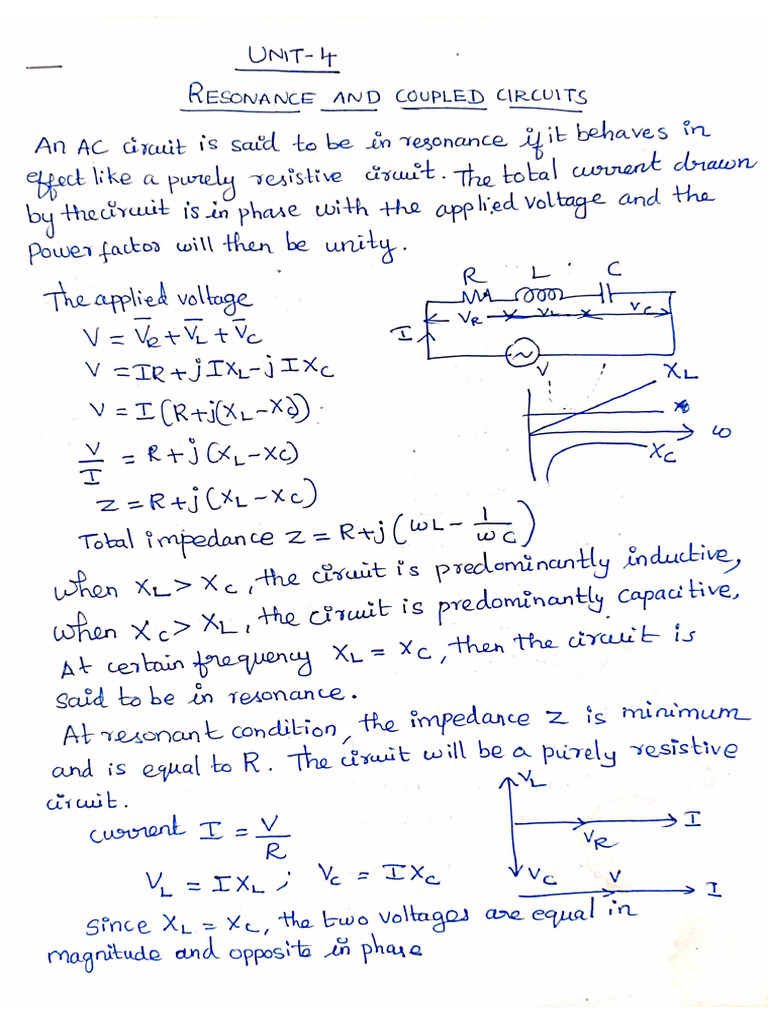 UNIT-4
RESONANCE AND COUPLED CIRCUITS
An AC circuit is said to be in resonance if it behaves in
effect like a purely resistive circuit. The total current drawn
by the circuit is in phase with the applied voltage and the
Power factor will then be unity.
R L C
The applied voltage
I VR VL VC
V = V̅R + V̅L + V̅C
V
V = IR + jIXL - jIXC
XL
V = I(R+j(XL-XC))
ω
V/I = R+j(XL-XC)
XC
Z = R+j(XL-XC)
Total impedance Z = R+j(ωL - 1/ωC)
when XL > XC, the circuit is predominantly inductive,
when XC > XL, the circuit is predominantly capacitive,
At certain frequency XL = XC, then the circuit is
said to be in resonance.
At resonant condition, the impedance Z is minimum
and is equal to R. The circuit will be a purely resistive
circuit.
VL
current I = V/R
I
VR
VL = IXL ; VC = IXC
VC V I
Since XL = XC, the two voltages are equal in
magnitude and opposite in phase